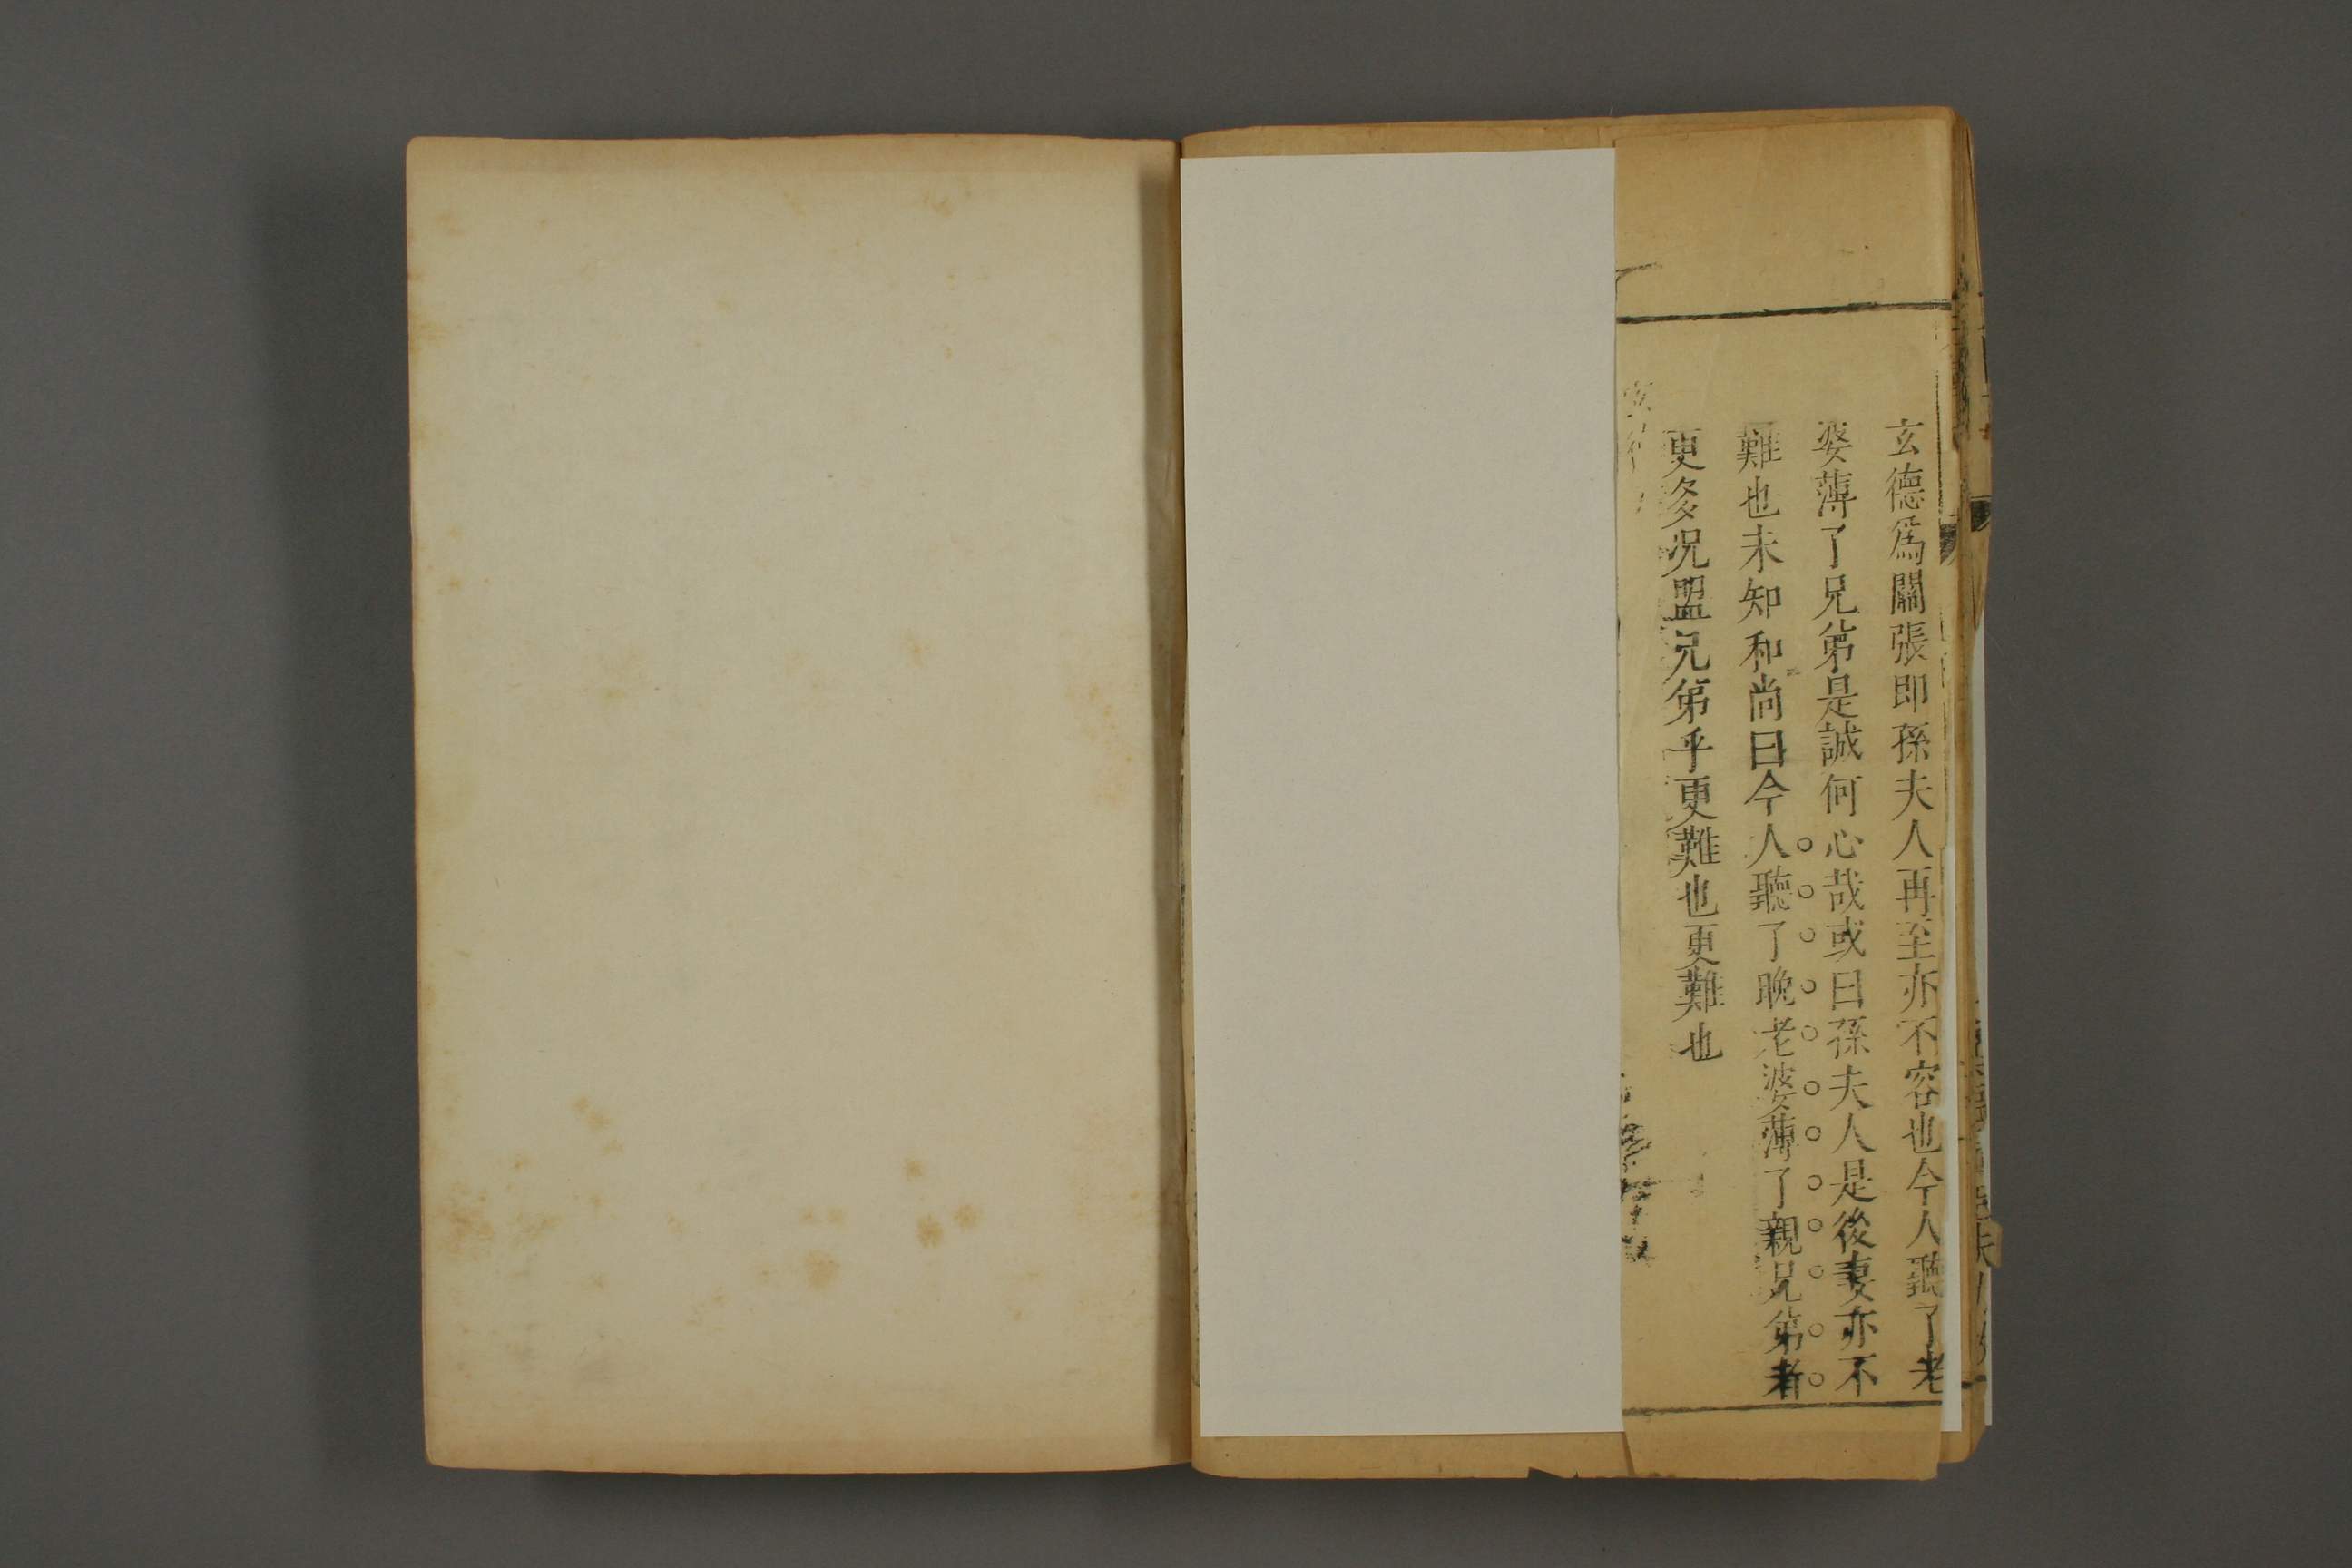 玄德爲關張即孫夫人再至亦不容也今人聽了老
婆薄了兄弟是誠何心哉或曰孫夫人是後妻亦不
難也未知和尚曰今人聽了晚老婆薄了親兄弟者
更多况盟兄弟乎更難也更難也